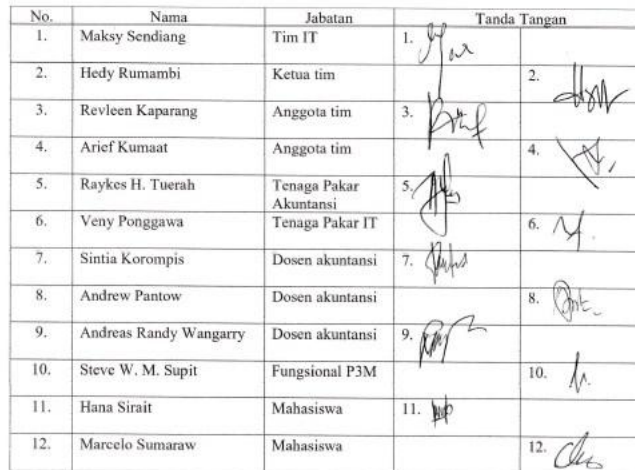 No. Nama Jabatan Tanda Tangan
1. Maksy Sendiang Tim IT 1.
2. Hedy Rumambi Ketua tim 2.
3. Revleen Kaparang Anggota tim 3.
4. Arief Kumaat Anggota tim 4.
5. Raykes H. Tuerah Tenaga Pakar 5.
Akuntansi
6. Veny Ponggawa Tenaga Pakar IT 6.
7. Sintia Korompis Dosen akuntansi 7.
8. Andrew Pantow Dosen akuntansi 8.
9. Andreas Randy Wangarry Dosen akuntansi 9.
10. Steve W. M. Supit Fungsional P3M 10.
11. Hana Sirait Mahasiswa 11.
12. Marcelo Sumaraw Mahasiswa 12.